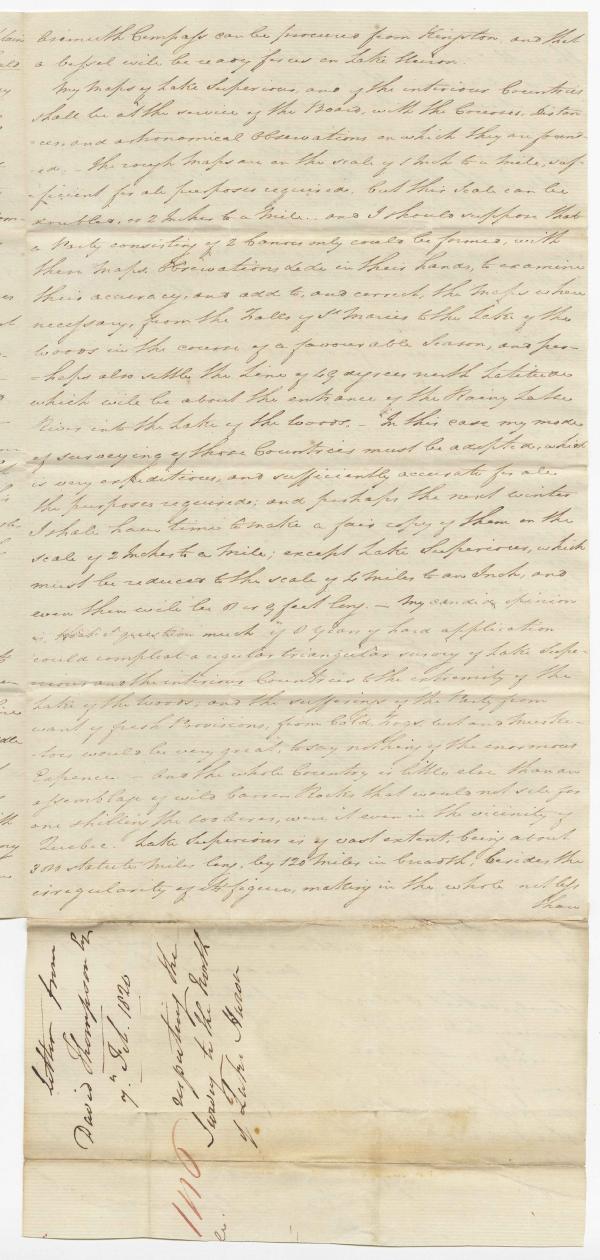 Azemuth Compass can be procured from Kingston, and that
a Vessel will be ready for us on Lake Huron.
My Maps of Lake Superiour, and of the interiour Countries
shall be at the service of the Board, with the Courses, Distan
-ces, and astronomical Observations on which they are found-
-ed. - The rough Maps are on the scale of 1 Inch to a mile, suf-
-ficient for all purposes required, but this Scale can be
doubled, or 2 Inches to a Mile. - and I should suppose that
a Party consisting of 2 Canoes only could be formed, with
these Maps, Observations &c &c in their hands, to examine
their accuracy, and add to, and correct, the Maps where
necessary, from the Falls of St Maries to the Lake of the
Woods in the course of a favourable Season, and per-
-haps also settle the Line of 49 degrees north Latitude
which will be about the entrance of the Rainy Lake
River into the Lake of the Woods. - In this case my mode
of surveying of those Countries must be adopted, which
is very expeditious, and sufficiently accurate for all
the purposes required; and perhaps the next winter
I shall have time to make a fair copy of them on the
scale of 2 Inches to a Mile; except Lake Superiour, which
must be reduced to the scale of 4 Miles to an Inch, and
even then will be 8 or 9 feet long. - My candid opinion
is, that I question much if 8 Years of hard application
could compleat a regular triangular survey of Lake Supe-
-riour and the interiour Countries to the extremity of the
Lake of the Woods; and the sufferings of the Party from
want of fresh Provisions, from Cold, Fogs, wet and Musketoes
would be very great, to say nothing of the enormous
Expence - and the whole Country is little else than an
assemblage of wild barren Rocks that would not sell for
one shilling the 100 Acres, were it even in the vicinity of
Quebec. Lake Superiour is of vast extent, being about
380 statute Miles long, by 120 Miles in breadth, besides the
irregularity of its figure, making in the whole not less
than
Letter from
David Thompson Esq
7th Feb. 1820
respecting the
Survey to the North
of Lake Huron